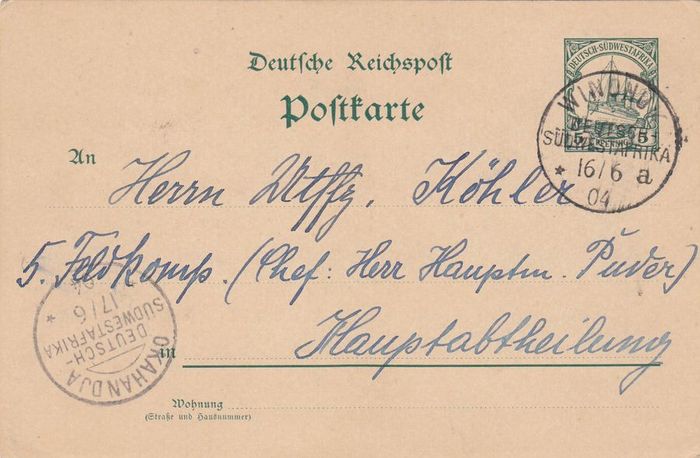 DEUTSCH-SÜDWESTAFRIKA
5 PFENNIG 5
Deutsche Reichspost
Postkarte
WINDHUK
DEUTSCH-
SÜDWESTAFRIKA
* 16/6 a
04
An
Herrn Köhler
5. Feldkomp. (Chef: Herr Hauptm. Puder)
in Hauptabtheilung
OKAHANDJA
DEUTSCH-
SÜDWESTAFRIKA
* 17/6
04
Wohnung
(Straße und Hausnummer)